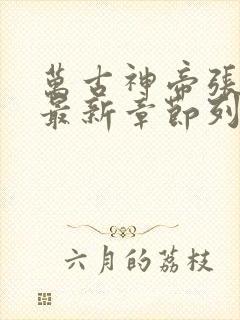 萬古神帝張
最新章節列
六月的荔枝